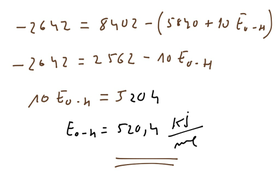 -2642 = 8402 - (5840 + 10 E₀₋H)
-2642 = 2562 - 10 E₀₋H
10 E₀₋H = 5204
E₀₋H = 520,4 kj/mol